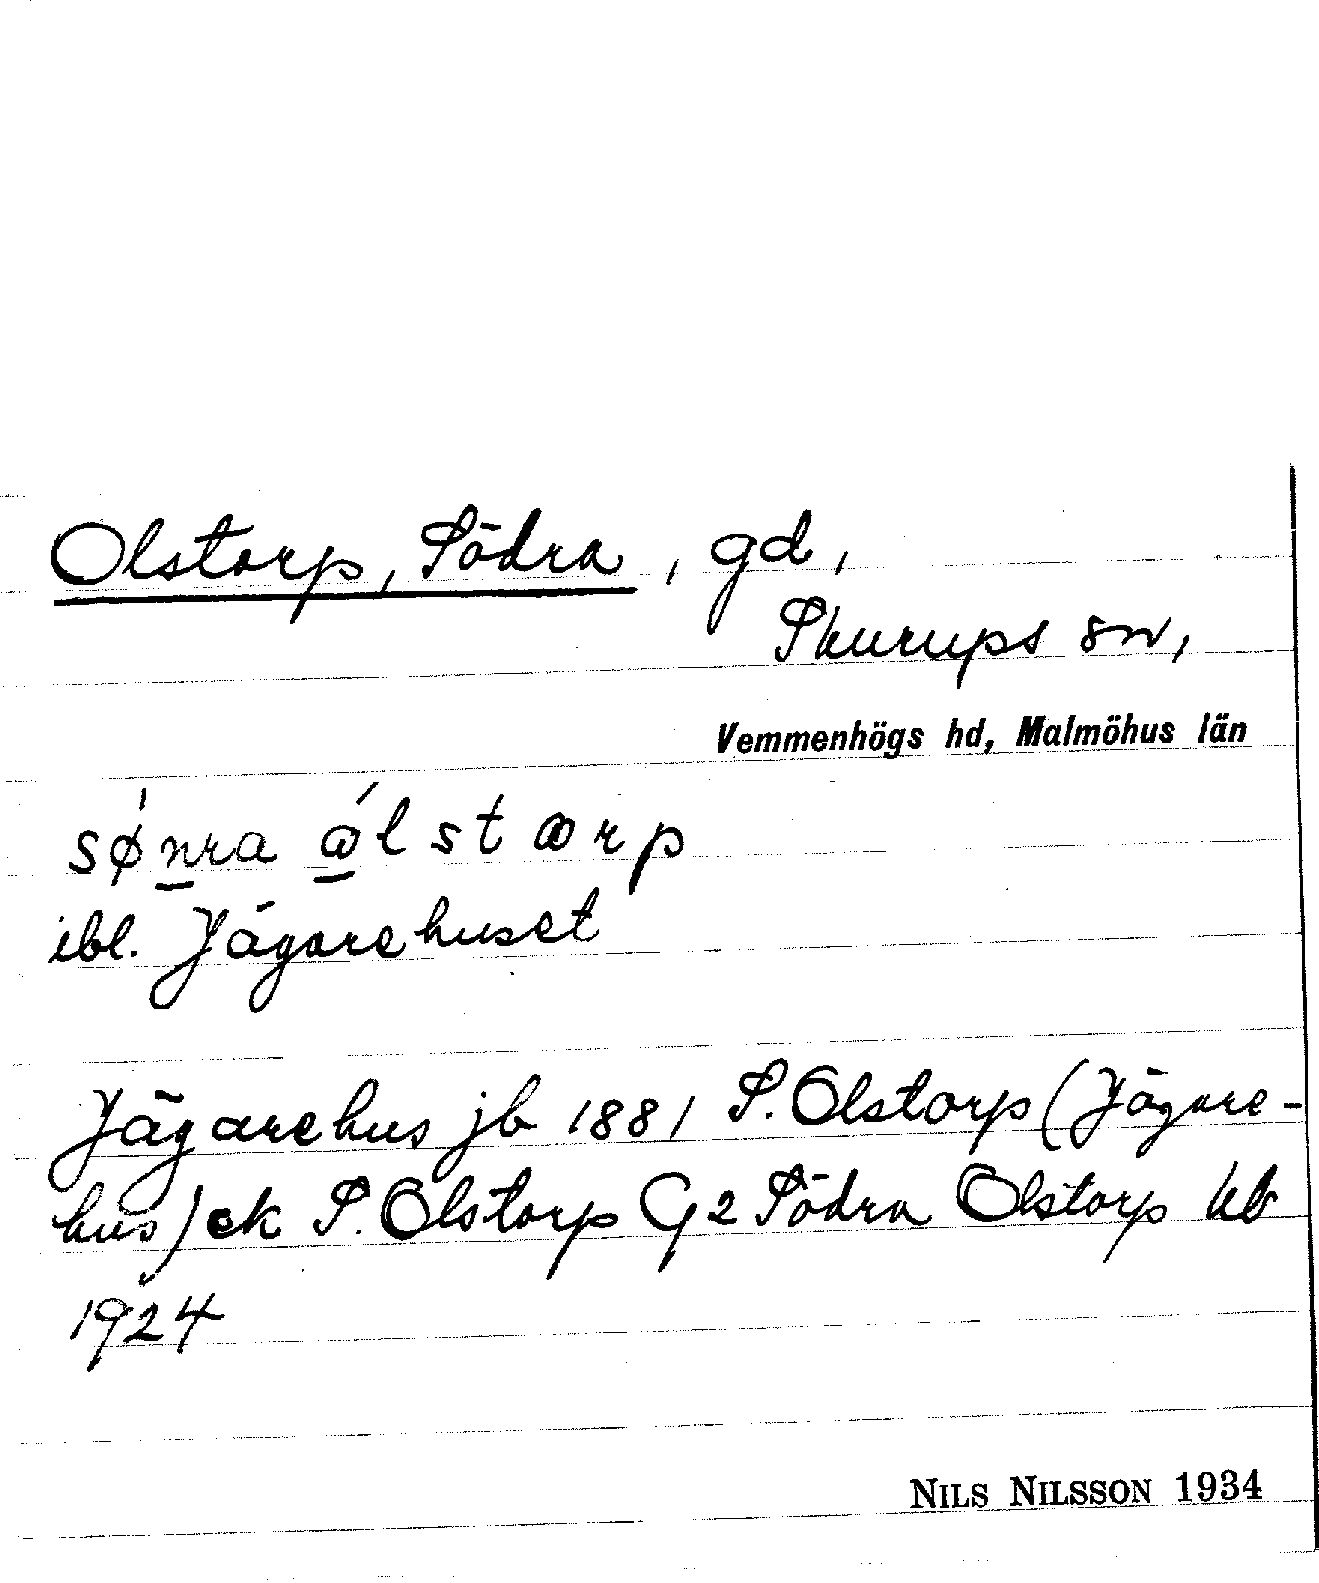 Olstorp, Södra, gd,
Skurups sn,
Vemmenhögs hd, Malmöhus län
sønra ålstørp
ibl. Jägarehuset
Jägarehus jb 1881 S. Olstorp (Jägare-
hus) ek S. Olstorp G2 Södra Olstorp kb
1924
NILS NILSSON 1934